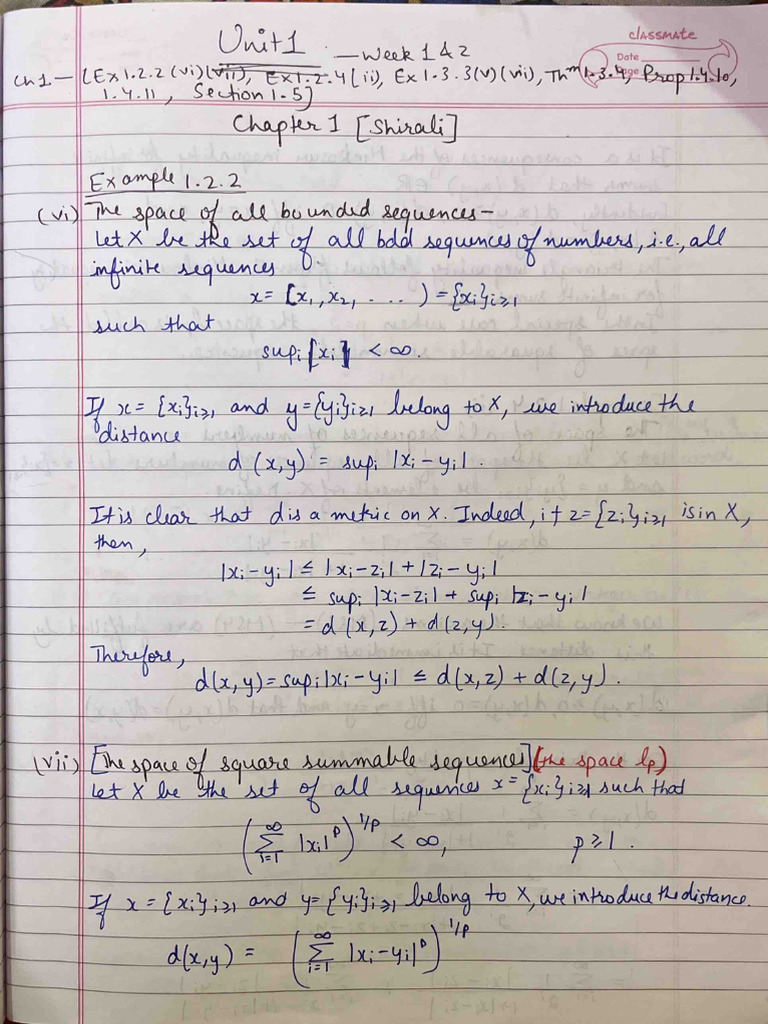 Unit 1 — Week 1 & 2
classmate
Date
Page
Ch 1 — [Ex 1.2.2 (vi)(vii), Ex 1.2.4 [ii), Ex 1.3.3(v)(vii), Thm 1.3.4, Prop 1.4.10,
1.4.11, Section 1.5]
Chapter 1 [Shirali]
Example 1.2.2
(vi) The space of all bounded sequences—
Let X be the set of all bdd sequences of numbers, i.e., all
infinite sequences
x = (x₁, x₂, . . . ) = {xᵢ}ᵢ≥₁
such that
supᵢ |xᵢ| < ∞.
If x = {xᵢ}ᵢ≥₁ and y = {yᵢ}ᵢ≥₁ belong to X, we introduce the
distance
d (x,y) = supᵢ |xᵢ − yᵢ| .
It is clear that d is a metric on X. Indeed, if z = {zᵢ}ᵢ≥₁ is in X,
then,
|xᵢ − yᵢ| ≤ |xᵢ − zᵢ| + |zᵢ − yᵢ|
≤ supᵢ |xᵢ − zᵢ| + supᵢ |zᵢ − yᵢ|
= d (x,z) + d (z,y).
Therefore,
d(x,y) = supᵢ |xᵢ − yᵢ| ≤ d(x,z) + d(z,y) .
(vii) [The space of square summable sequences] (the space lₚ)
Let X be the set of all sequences x = {xᵢ}ᵢ≥₁ such that
(∑_{i=1}^{∞} |xᵢ|^p)^{1/p} < ∞, p ≥ 1.
If x = {xᵢ}ᵢ≥₁ and y = {yᵢ}ᵢ≥₁ belong to X, we introduce the distance.
d(x,y) = (∑_{i=1}^{∞} |xᵢ − yᵢ|^p)^{1/p}